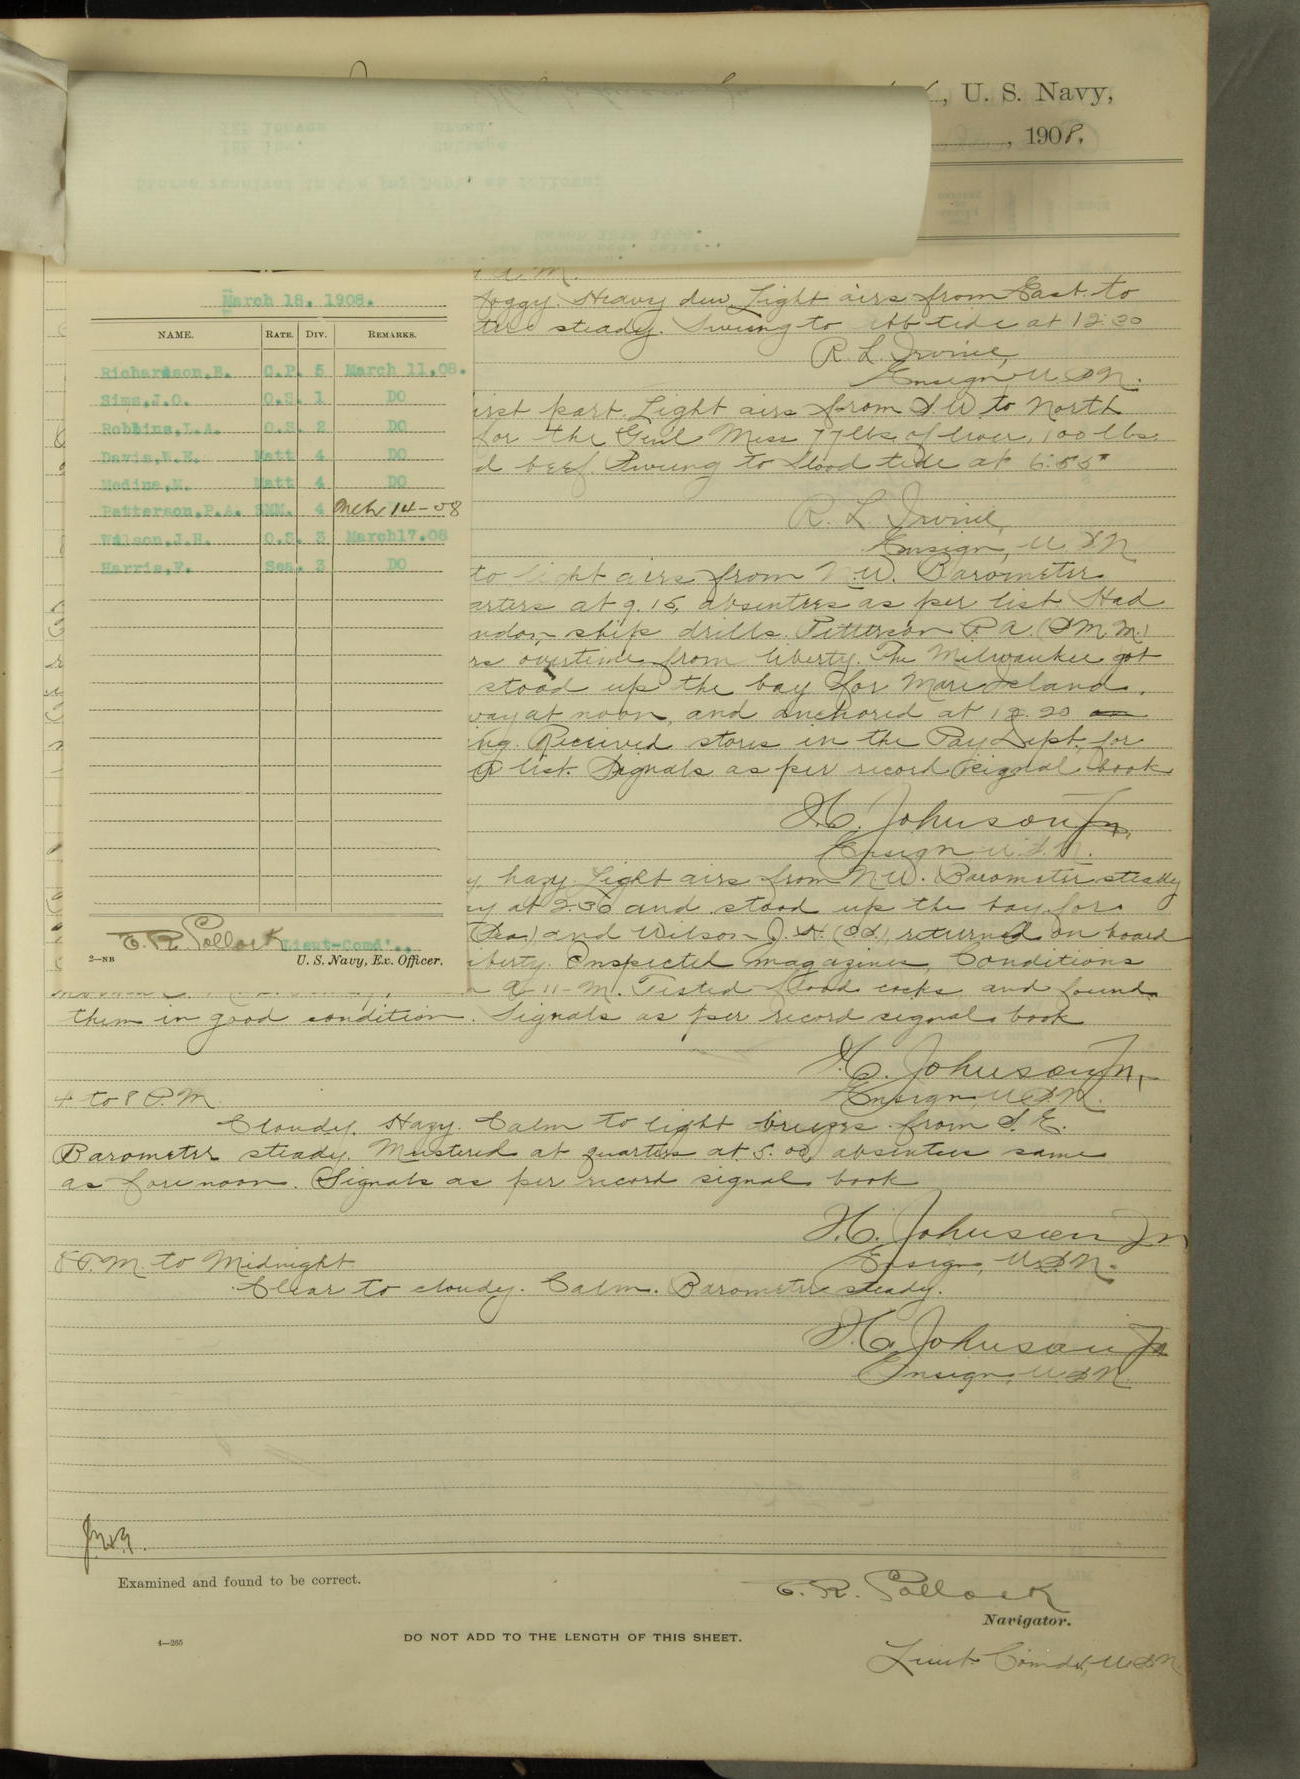 , U. S. Navy,
, 1908.
A. M.
foggy. Heavy dew. Light airs from East to
steady. Swung to ebb tide at 12:30
R. L. Irvine,
Ensign, U.S.N.
March 18. 1908.
NAME. RATE. DIV. REMARKS.
Richardson,B. C.P. 5 March 11.08.
Sims,J.O. O.S. 1 DO
Robbins,L.A. O.S. 2 DO
Davis,W.E. Matt 4 DO
Medina,M. Matt 4 DO
Patterson,P.A. SMM. 4 Mch 14-08
Wilson,J.H. O.S. 3 March17.08
Harris,F. Sea. 3 DO
E. R. Pollock Lieut-Comd'.,
2—NB U. S. Navy, Ex. Officer.
irst part. Light airs from S.W to North
for the Genl Mess 77 lbs of liver, 100 lbs.
d beef. Swung to flood tide at 6:55
R. L. Irvine,
Ensign, U.S.N
to light airs from N.W. Barometer
arters at 9.15, absentees as per list. Had
ship drills. Patterson P.A. (S.M.M.)
rs overtime from liberty. The Milwaukee got
stood up the bay for Mare Island.
way at noon, and anchored at 12.20
ing. Received stores in the Pay Dept. for
list. Signals as per record signal book
H. Johnson Jr.,
Ensign U.S.N.
y, hazy. Light airs from N.W. Barometer steady
ay at 2.36 and stood up the bay for
(Sea.) and Wilson J.H. (O.S.) returned on board
iberty. Inspected magazines, Conditions
11-M. Tested flood cocks and found
them in good condition. Signals as per record signal book
H. Johnson Jr.,
Ensign, U.S.N.
4 to 8 P.M.
Cloudy. Hazy. Calm to light breezes from S.E.
Barometer steady. Mustered at quarters at 5.00, absentees same
as forenoon. Signals as per record signal book
H. Johnson Jr
Ensign, U.S.N.
8 P.M. to Midnight
Clear to cloudy. Calm. Barometer steady.
H. Johnson Jr
Ensign, U.S.N.
Examined and found to be correct.
E. R. Pollock
Navigator.
4—265 DO NOT ADD TO THE LENGTH OF THIS SHEET.
Lieut. Comdr, U.S.N.